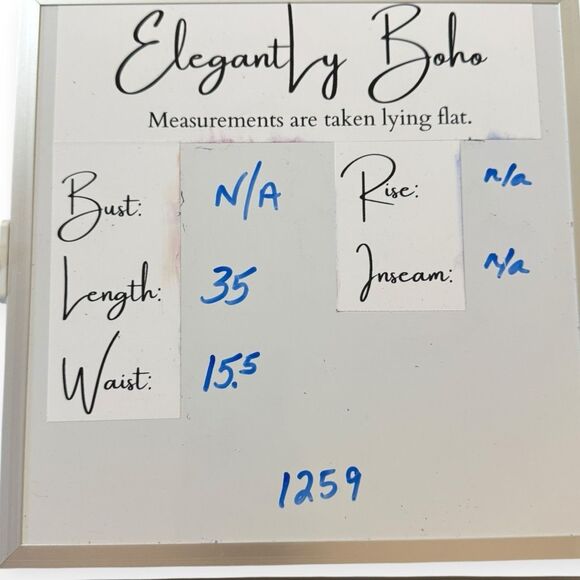 Elegantly Boho
Measurements are taken lying flat.
Bust: N/A
Rise: n/a
Length: 35
Inseam: n/a
Waist: 15.5
1259